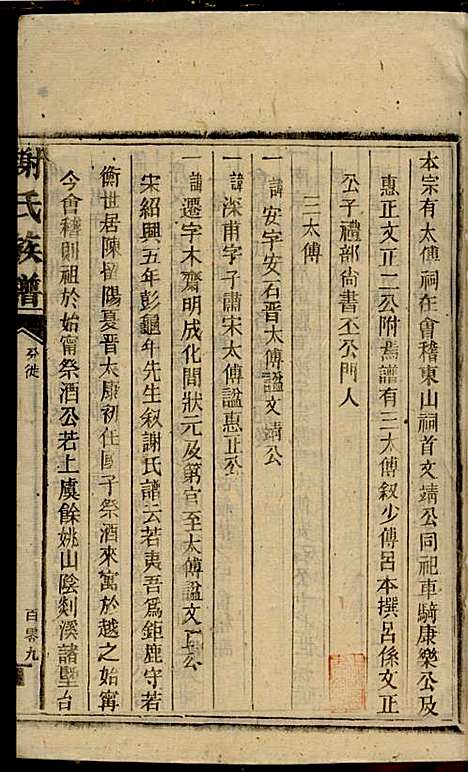 本宗有太傅祠在會稽東山祠首文靖公同祀車騎康樂公及
惠正文正二公附焉譜有三太傅叙少傅呂本撰呂係文正
公子禮部尙書丕公門人
三太傅
一諱安字安石晋太傅謚文靖公
一諱深甫字子肅宋太傅謚惠正公
一諱遷字木齋明成化間狀元及第官至太傅謚文正公
宋紹興五年彭龜年先生叙謝氏譜云若夷吾爲鉅鹿守若
衡世居陳留陽夏晋太康初任國子祭酒來寓於越之始甯
今會稽則祖於始甯祭酒公若上虞餘姚山陰剡溪諸墅台
謝氏族譜
百零九